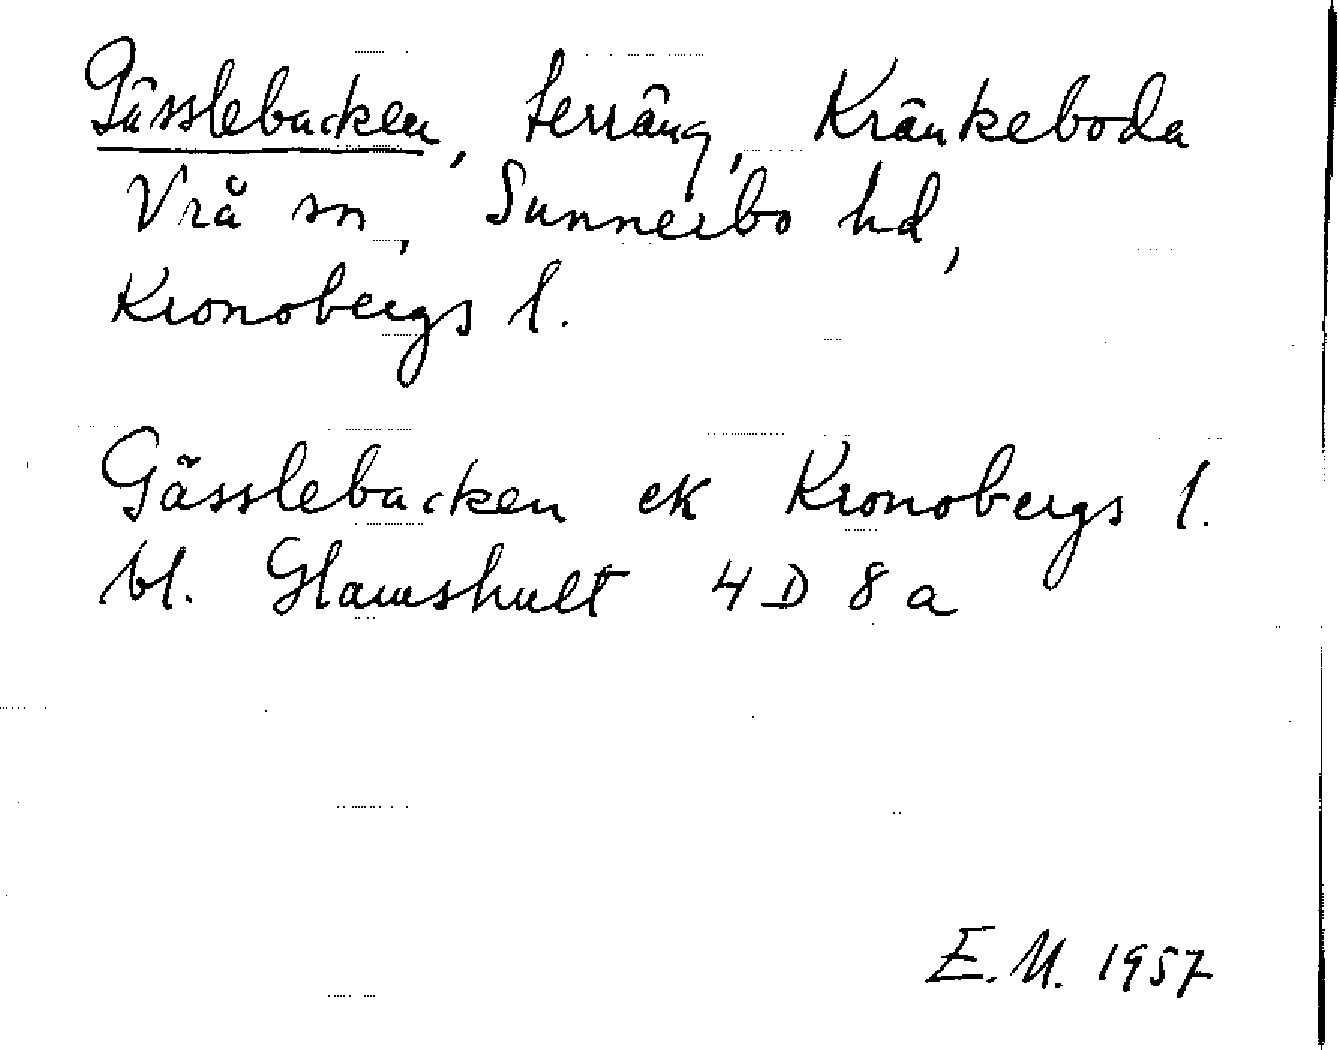 Gässlebacken, terräng, Kränkeboda
Vrå sn, Sunnerbo hd,
Kronobergs l.
Gässlebacken ek Kronobergs l.
bl. Glamshult 4 D 8 a
E. M. 1957